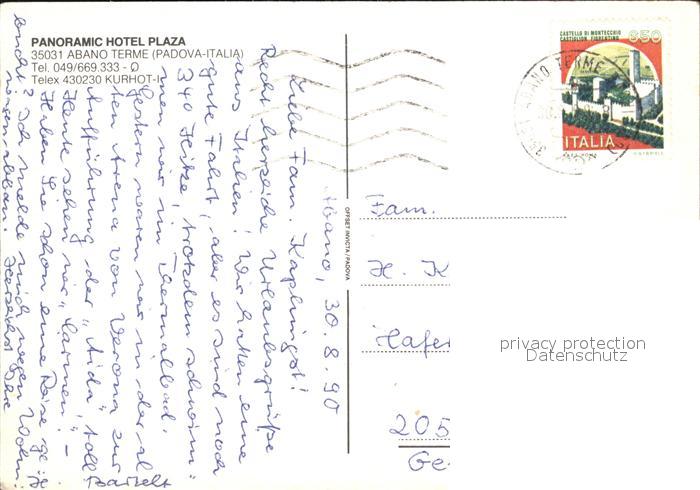 PANORAMIC HOTEL PLAZA
35031 ABANO TERME (PADOVA-ITALIA)
Tel. 049/669.333 - Ø
Telex 430230 KURHOT-I
Abano, 30.8.90
Liebe Fam.
Recht herzliche Urlaubsgrüße
aus Italien! Wir hatten eine
gute Fahrt, aber es sind noch
34° Hitze, trotzdem schwim-
men wir im Thermalbad.
Gestern waren wir in der al
ten Arena von Verona zur
Aufführung der "Aida" toll
Heute sehen wir "Carmen"! -
Haben Sie schon eine Reise ge
bucht? Ich melde mich wegen
Bartelt
OFFSET INVICTA / PADOVA
CASTELLO DI MONTECCHIO
CASTIGLION FIORENTINO
650
ITALIA
ABANO TERME
Fam.
H. K
Hafer
205
Ge
privacy protection
Datenschutz